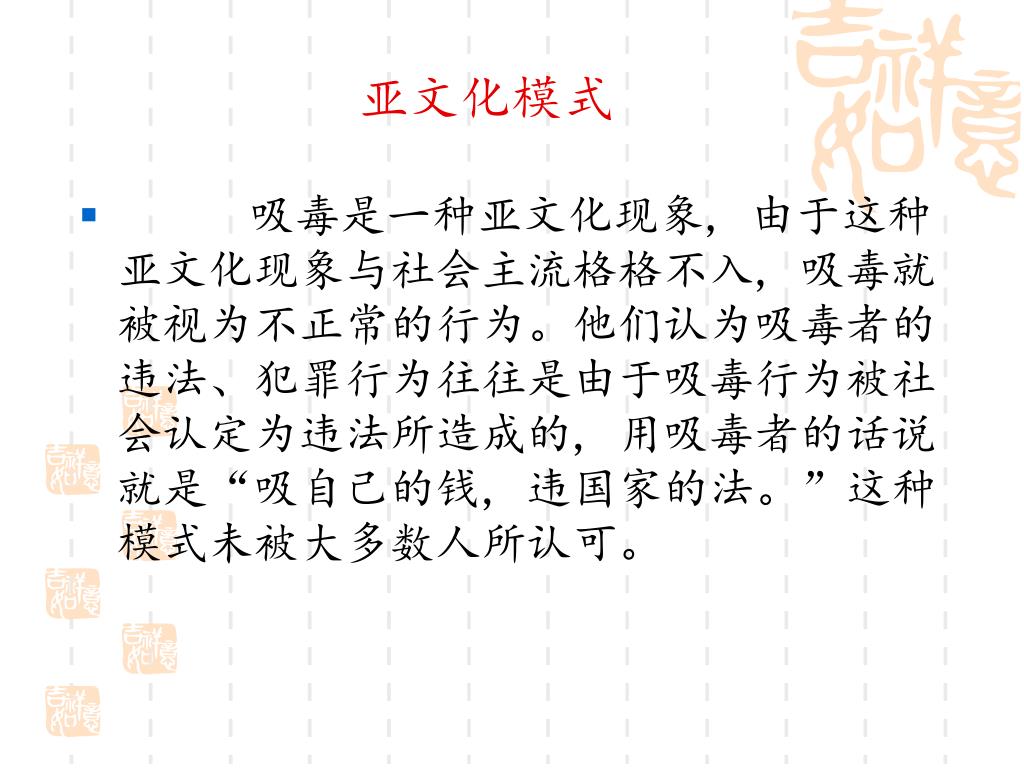 吉祥
如意
亚文化模式
吸毒是一种亚文化现象，由于这种
亚文化现象与社会主流格格不入，吸毒就
被视为不正常的行为。他们认为吸毒者的
违法、犯罪行为往往是由于吸毒行为被社
会认定为违法所造成的，用吸毒者的话说
就是“吸自己的钱，违国家的法。”这种
模式未被大多数人所认可。
吉祥
如意
吉祥
如意
吉祥
如意
吉祥
如意
吉祥
如意
吉祥
如意